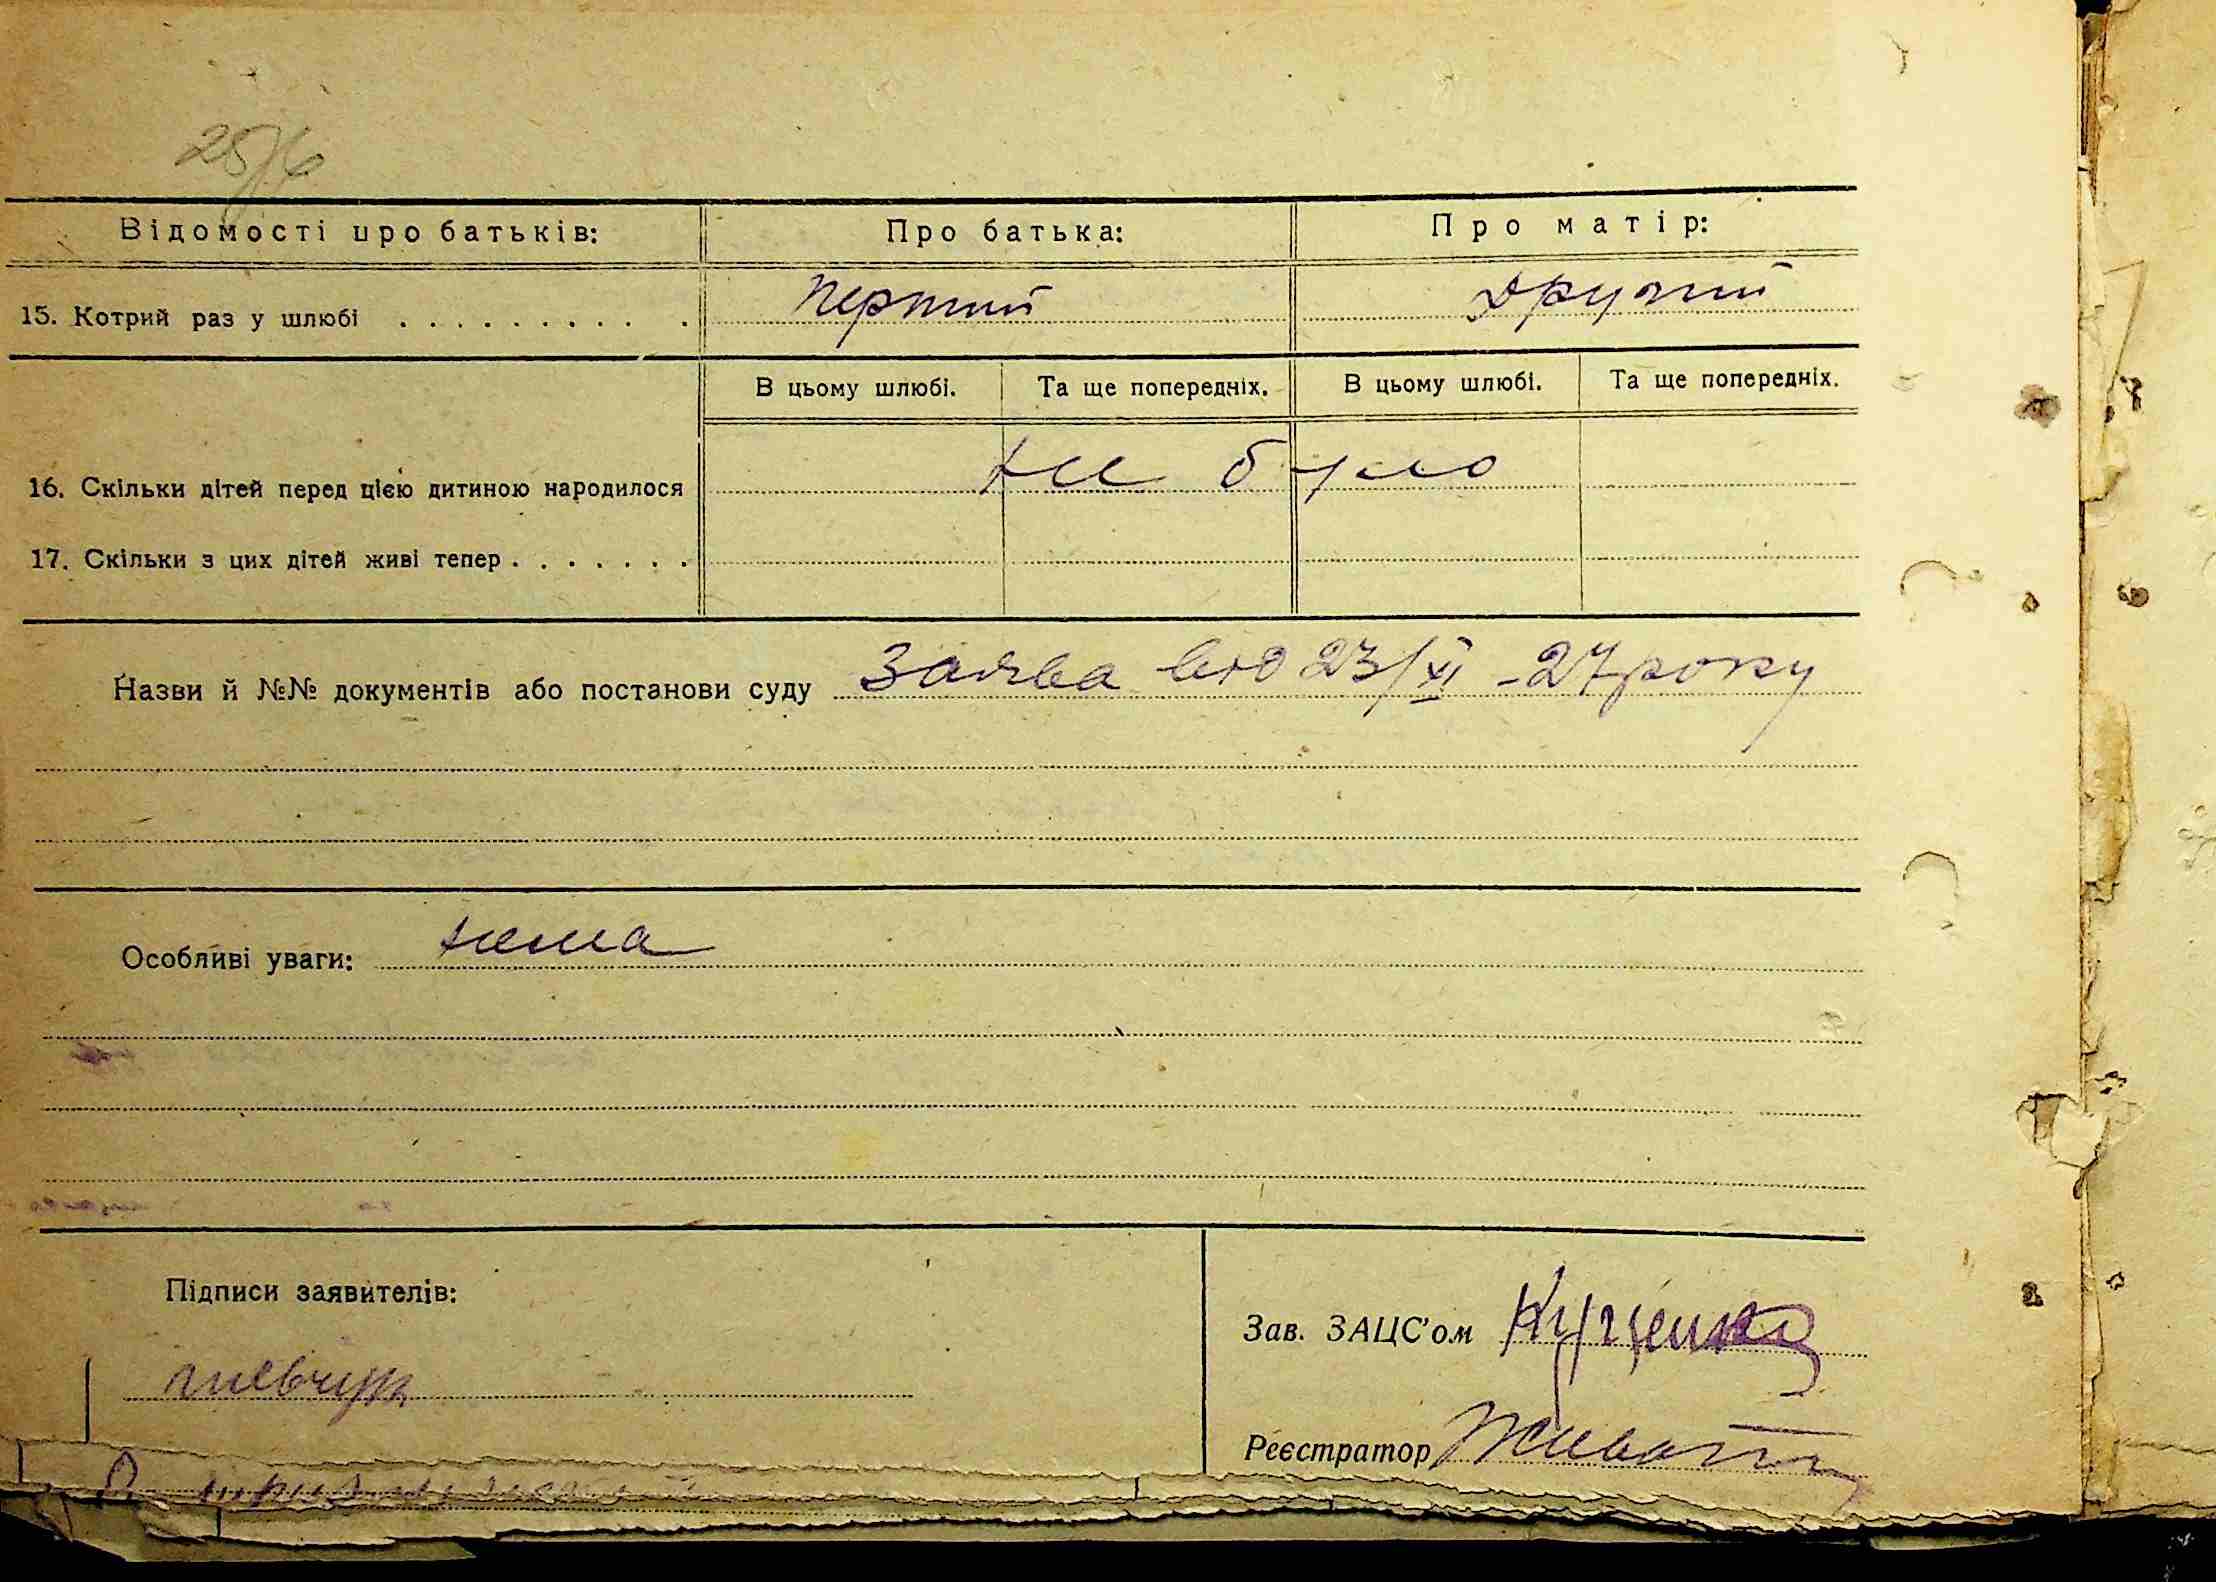 Відомості про батьків: Про батька: Про матір:
15. Котрий раз у шлюбі . . . . . . . . . . . перший другий
В цьому шлюбі. Та ще попередніх. В цьому шлюбі. Та ще попередніх.
16. Скільки дітей перед цією дитиною народилося не було
17. Скільки з цих дітей живі тепер . . . . . . .
Назви й №№ документів або постанови суду Заява від 23/XI - 27 року
Особливі уваги: нема
Підписи заявителів:
Зав. ЗАЦС'ом Куценко
шевчук
Реєстратор